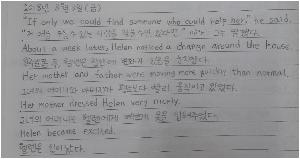 2018년 8월 3일 (금)
"If only we could find someone who could help her," he said.
"그녀를 도울 수 있는 사람을 찾을 수만 있다면," 그가 말했다.
About a week later, Helen noticed a change around the house.
일주일 후, 헬렌은 집안에 변화가 있음을 눈치챘다.
Her mother and father were moving more quickly than normal.
그녀의 어머니와 아버지가 평소보다 빨리 움직이고 있었다.
Her mother dressed Helen very nicely.
그녀의 어머니는 헬렌에게 예쁘게 옷을 입혀주었다.
Helen became excited.
헬렌은 신이 났다.